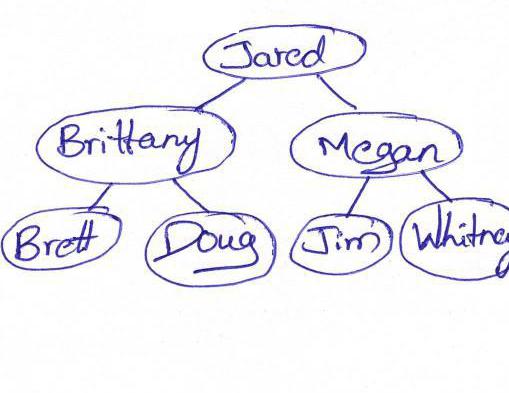 Jared
Brittany Megan
Brett Doug Jim Whitney